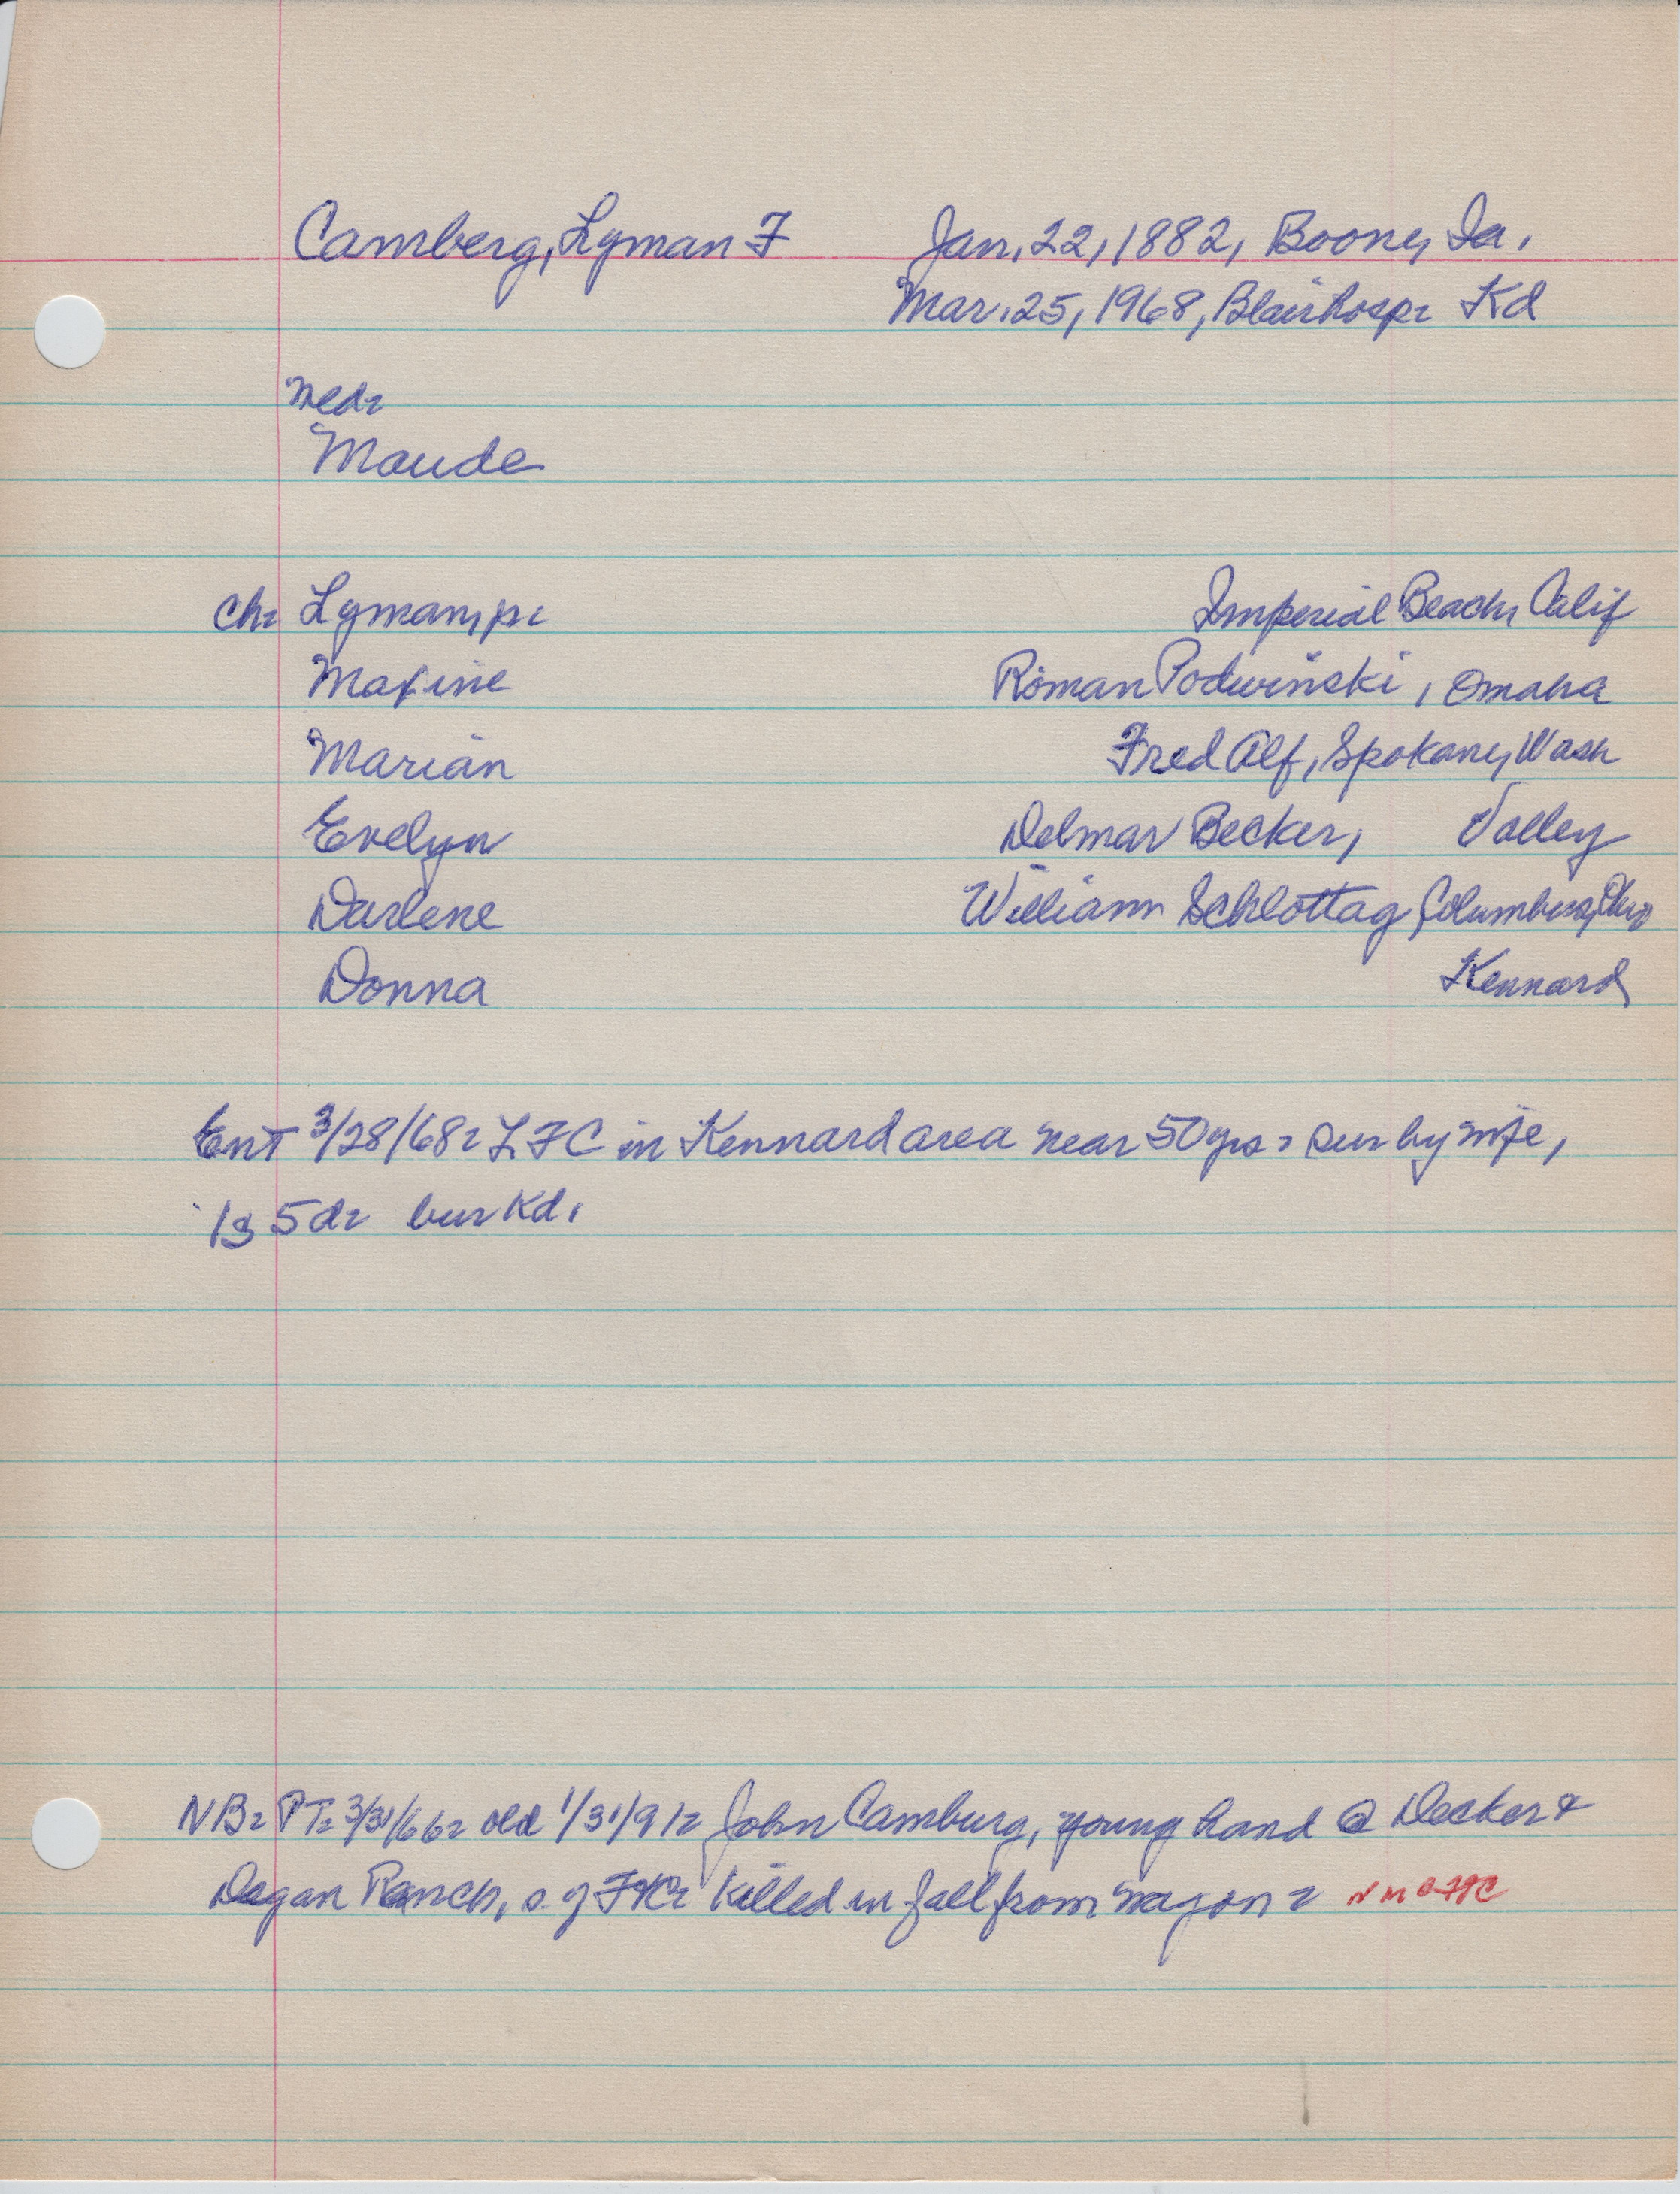 Camberg, Lyman F Jan. 22, 1882, Boone, Ia.
Mar. 25, 1968, Blair hosp: Kd
Wed:
Maude
Ch: Lyman, jr: Imperial Beach, Calif
Maxine Roman Podwinski, Omaha
Marian Fred Alf, Spokane, Wash
Evelyn Delmar Becker, Valley
Darlene William Schlottag, Columbus, Ohio
Donna Kennard
Ent 3/28/68: LFC in Kennard area near 50 yrs: sur by wife,
1s 5d: bur Kd.
NB: PT: 3/31/66: old 1/31/91: John Camburg, young hand @ Decker &
Degan Ranch, s. of FKC: Killed in fall from wagon: